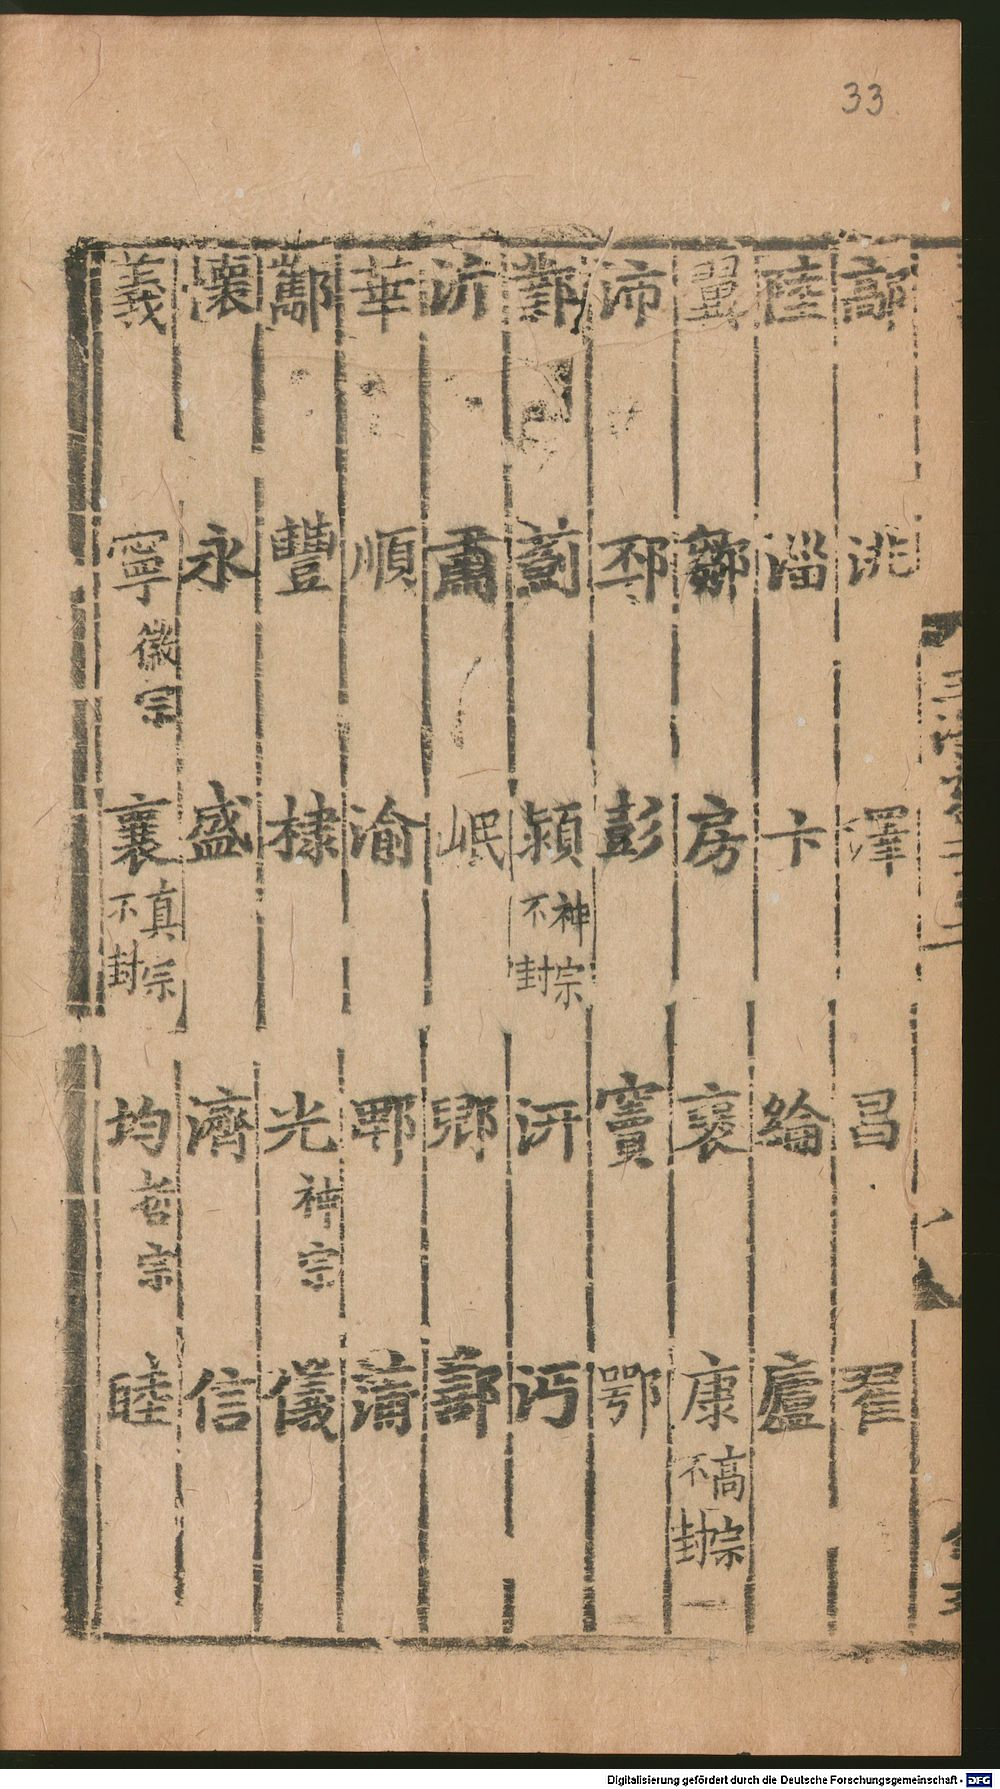 33
鄗 洮 澤 昌 翟
陸 淄 卞 綸 廬
翼 鄒 房 襃 康 高宗不封
沛 邳 彭 竇 鄂
鄴 薊 潁 神宗不封 沂 沔
沂 肅 岷 鄉 壽
華 順 渝 鄆 蒲
酇 豐 棣 光 神宗 儀
懷 永 盛 濟 信
義 寧 徽宗 襄 真宗不封 均 哲宗 睦
Digitalisierung gefördert durch die Deutsche Forschungsgemeinschaft - DFG